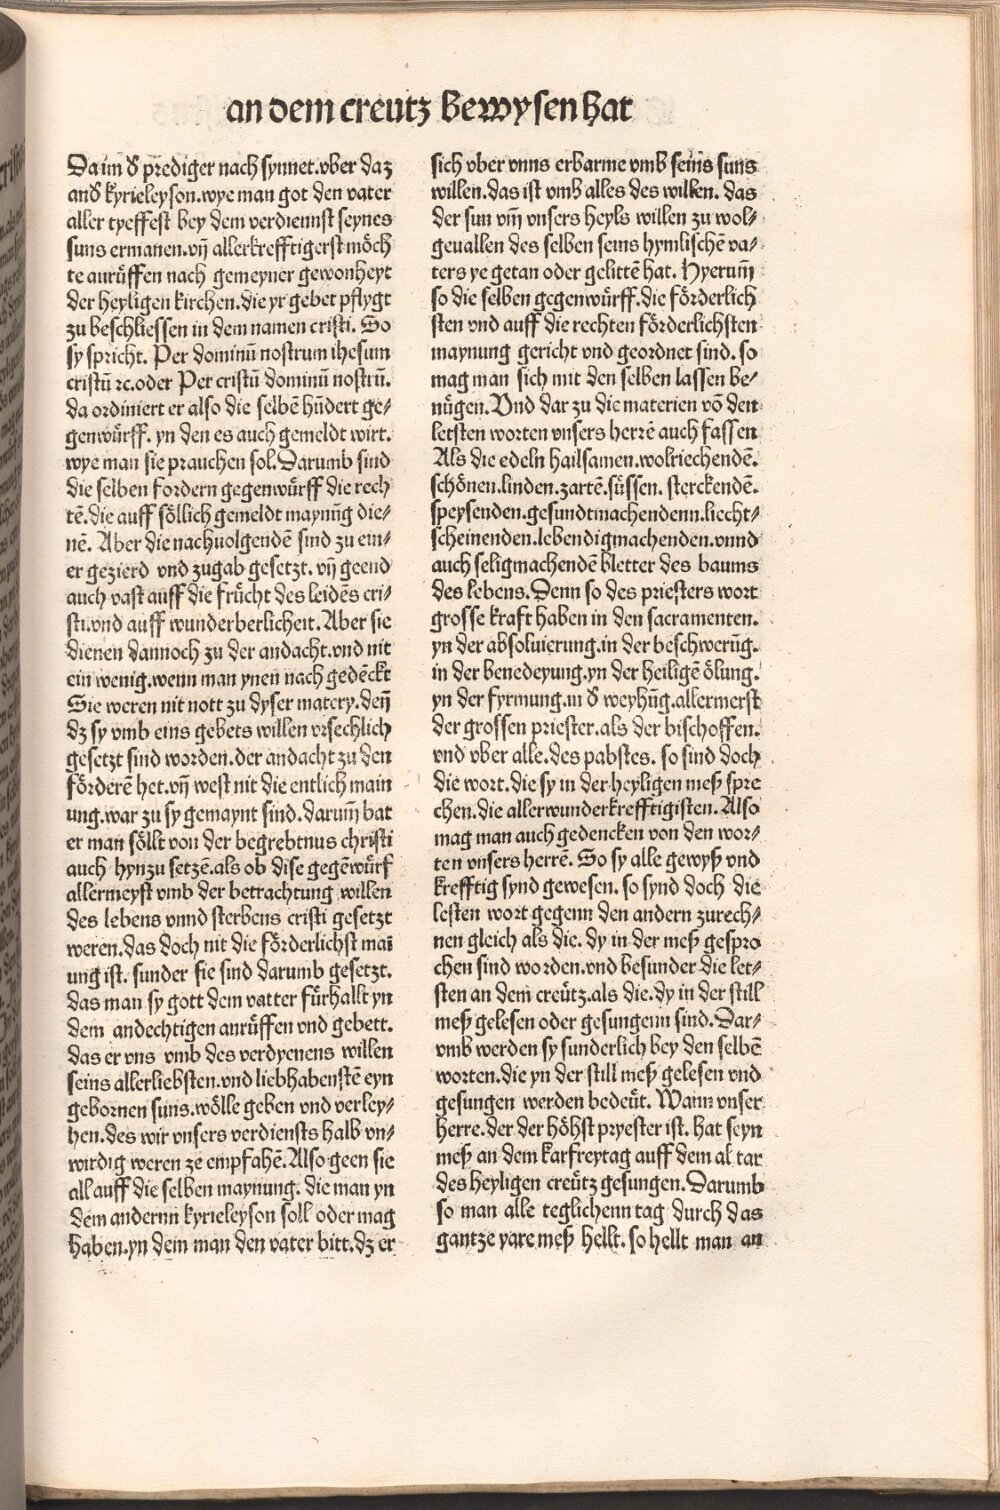 an dem creutz bewysen hat
Da im d̕ prediger nach synnet.vber daz
and̕ kyrieleyson.wye man got den vater
aller tyeffest bey dem verdiennst seynes
suns ermanen.vñ allerkrefftigerst möch
te anrůffen nach gemeyner gewonheyt
der heyligen kirchen.die yr gebet pflygt
zu beschliessen in dem namen cristi. So
sy spricht. Per dominū nostrum ihesum
cristū ꝛc.oder Per cristū dominū nostrū.
da ordiniert er also die selbē hūdert ge⸗
genwürff. yn den es auch gemeldt wirt.
wye man sie prauchen sol.Darumb sind
die selben fordern gegenwürff die rech
tē.die auff söllich gemeldt maynūg die⸗
nē. Aber die nachuolgendē sind zu ein⸗
er gezierd vnd zugab gesetzt. vñ geend
auch vast auff die frücht des leidēs cri⸗
sti.vnd auff wunderberlicheit. Aber sie
dienen dannoch zu der andacht.vnd nit
ein wenig.wenn man ynen nach gedēckt
Sie weren nit nott zu dyser matery.deñ
dz sy vmb eins gebets willen vrsechlich
gesetzt sind worden.der andacht zu den
förderē het.vñ west nit die entlich main
ung.war zu sy gemaynt sind.darum̄ hat
er man söllt von der begrebtnus christi
auch hynzu setzē.als ob dise gegēwürf
allermeyst vmb der betrachtung willen
des lebens vnnd sterbens cristi gesetzt
weren.das doch nit die förderlichst maī
ung ist. sunder sie sind darumb gesetzt.
das man sy gott dem vatter fürhallt yn
dem andechtigen anrüffen vnd gebett.
das er vns vmb des verdyenens willen
seins allerliebsten.vnd liebhabenstē eyn
gebornen suns.wölle geben vnd verley⸗
hen.des wir vnsers verdiensts halb vn⸗
wirdig weren ze empfahē.Also geen sie
all auff die selben maynung. die man yn
dem andernn kyrieleyson soll oder mag
haben.yn dem man den vater bitt.dz er
sich vber vnns erbarme vmb seins suns
willen.das ist vmb alles des willen. das
der sun vm̄ vnsers heyls willen zu wol⸗
geuallen des selben seins hymlischē va⸗
ters ye getan oder gelittē hat. Hyerum̄
so die selben gegenwürff.die förderlich
sten vnd auff die rechten förderlichsten
maynung gericht vnd geordnet sind. so
mag man sich mit den selben lassen be⸗
nügen.Vnd dar zu die materien vō den
letsten worten vnsers herrē auch fassen
Als die edeln hailsamen.wolriechendē.
schönen.linden.zartē.süssen. sterckendē.
speysenden.gesundtmachendenn.liecht⸗
scheinenden.lebendigmachenden.vnnd
auch seligmachendē bletter des baums
des lebens.Denn so des priesters wort
grosse kraft haben in den sacramenten.
yn der absoluierung.in der beschwerūg.
in der benedeyung.yn der heiligē ölung.
yn der fyrmung.in d̕ weyhūg.allermerst
der grossen priester.als der bischoffen.
vnd vber alle.des pabstes. so sind doch
die wort.die sy in der heyligen meß spre
chen.die allerwunderkrefftigisten. Also
mag man auch gedencken von den wor⸗
ten vnsers herrē. So sy alle gewyß vnd
krefftig synd gewesen. so synd doch die
lesten wort gegenn den andern zurech⸗
nen gleich als die. dy in der meß gespro
chen sind worden.vnd besunder die let⸗
sten an dem creütz.als die.dy in der still
meß gelesen oder gesungenn sind.Dar⸗
vmb werden sy sunderlich bey den selbē
worten.die yn der still meß gelesen vnd
gesungen werden bedeüt. Wann vnser
herre.der der höhst pryester ist. hat seyn
meß an dem karfreytag auff dem al tar
des heyligen creütz gesungen.Darumb
so man alle teglichenn tag durch das
gantze yare meß hellt. so hellt man an